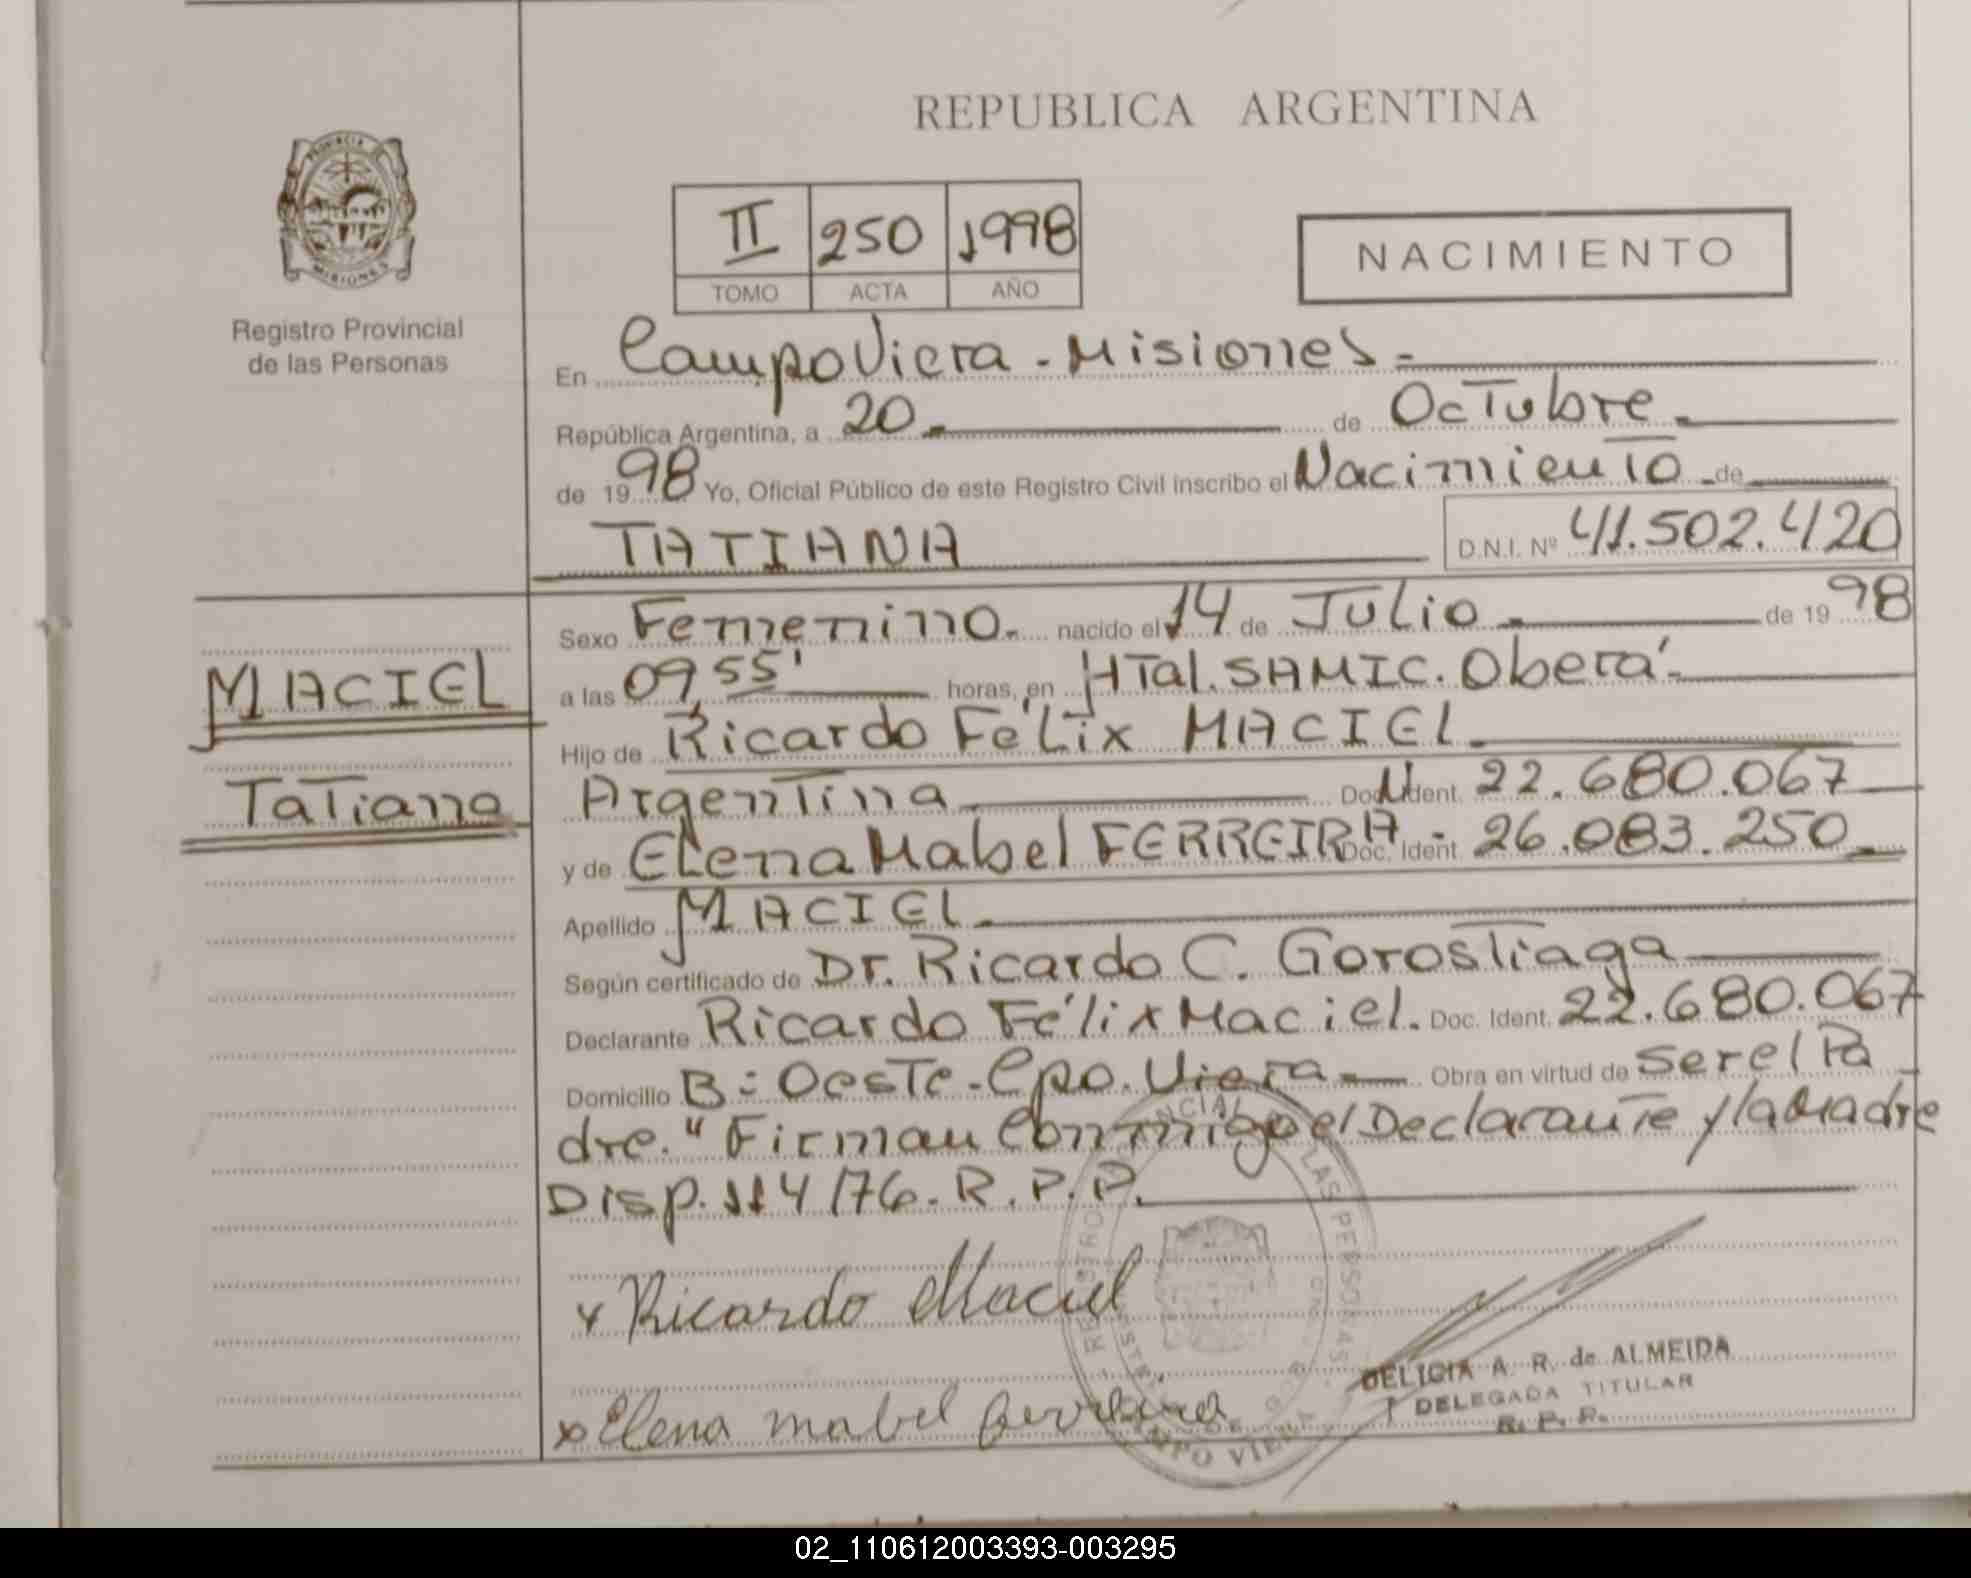 REPUBLICA ARGENTINA
PROVINCIA DE
MISIONES
Registro Provincial
de las Personas
II 250 1998
TOMO ACTA AÑO
NACIMIENTO
En Campo Viera - Misiones -
República Argentina, a 20 de Octubre
de 19 98 Yo, Oficial Público de este Registro Civil inscribo el Nacimiento de
TATIANA D.N.I. Nº 41.502.420
MACIEL
Tatiana
Sexo Femenino. nacido el 14 de Julio de 19 98
a las 09,55' horas, en HTal. SAMIC. Oberá
Hijo de Ricardo Félix MACIEL
Argentina Doc. Ident. 22.680.067
y de Elena Mabel FERREIRA Doc. Ident. 26.083.250
Apellido MACIEL
Según certificado de Dr. Ricardo C. Gorostiaga
Declarante Ricardo Félix Maciel. Doc. Ident. 22.680.067
Domicilio B: Oeste - Cpo. Viera Obra en virtud de ser el Pa
dre. " Firman Conmigo el Declarante y la Madre
Disp. 114/76. R.P.P.
x Ricardo Maciel
x Elena mabel ferreira
DELICIA A. R. de ALMEIDA
DELEGADA TITULAR
R. P. P.
02_110612003393-003295